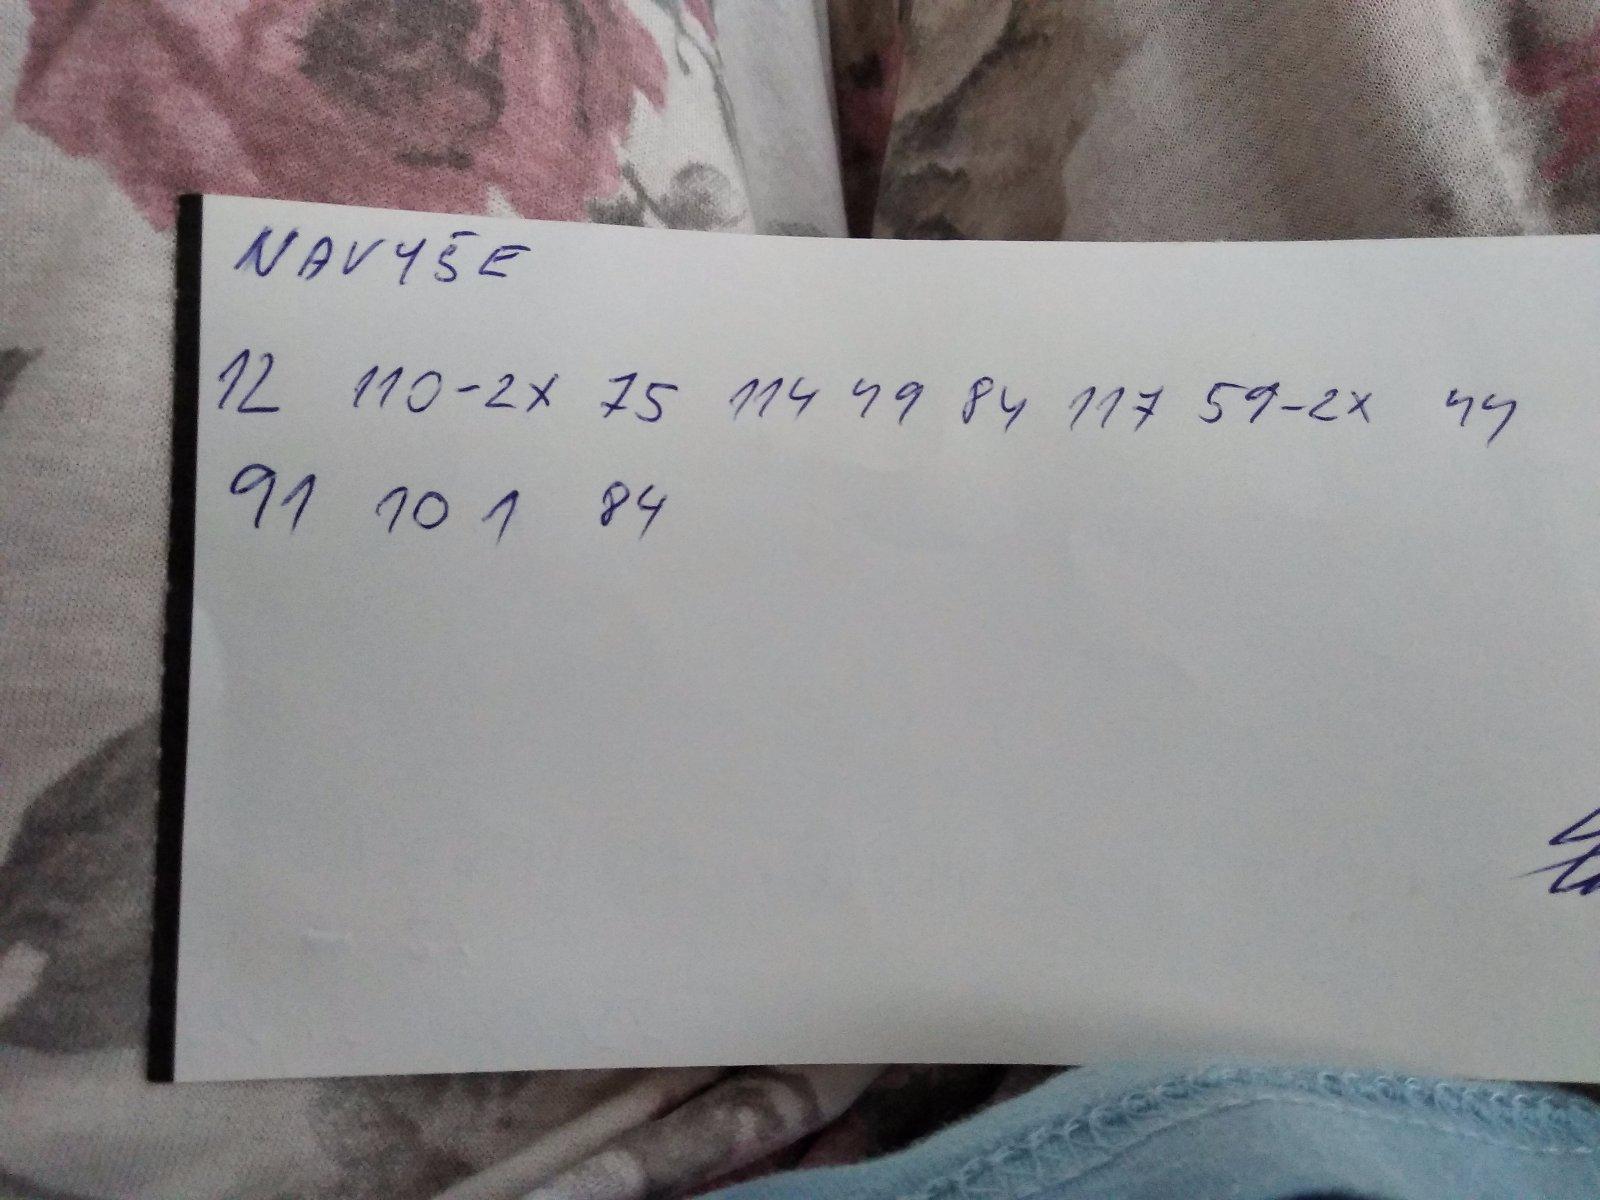 NAVYŠE
12 110-2x 75 114 49 84 117 59-2x 44
91 10 1 84